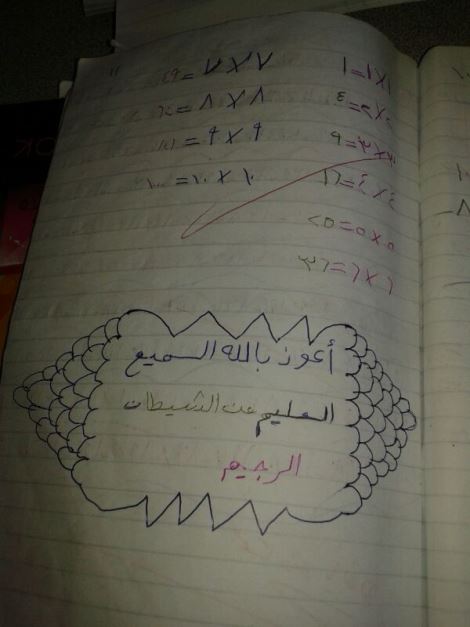 ١×١=١
٢×٢=٤
٣×٣=٩
٤×٤=١٦
٥×٥=٢٥
٦×٦=٣٦
٧×٧=٤٩
٨×٨=
٩×٩=
١٠×١٠=١٠٠
أعوذ بالله السميع
العليم من الشيطان
الرجيم